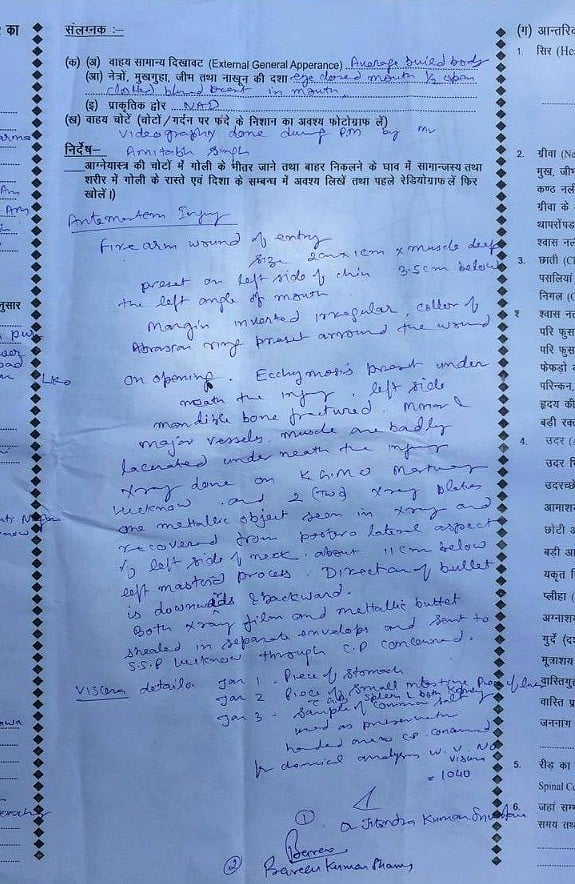 र का
संलग्नक :–
(ग) आन्तरि
(क) (अ) वाहय सामान्य दिखावट (External General Apperance) Average build body
1. सिर (He
(आ) नेत्रों, मुखगुहा, जीम तथा नाखून की दशा eye closed mouth ½ open
clotted blood present in mouth
(इ) प्राकृतिक द्वोर NAD
(ख) वाहय चोटें (चोटों/गर्दन पर फंदे के निशान का अवश्य फोटोग्राफ लें)
Videography done during P.M. by Mr
Amitabh Singh
निर्देष–
आग्नेयास्त्र की चोटों में गोली के भीतर जाने तथा बाहर निकलने के घाव में सामान्जस्य तथा
शरीर में गोली के रास्ते एवं दिशा के सम्बन्ध में अवश्य लिखें तथा पहले रेडियोग्राफ लें फिर
खोलें।)
2. ग्रीवा (Ne
मुख, जीभ
कण्ठ नली
ग्रीवा के
थापरॉपड
श्वास नल
Antemortem Injury
Fire arm wound of entry
size 2cm x 1cm x muscle deep
present on left side of chin 3.5cm below
the left angle of mouth
margin inverted irregular, coller of
Abrasion ring present arround the wound
on opening. Ecchymosis present under
neath the injury. left side
mandible bone fractured.
major vessels. muscle are badly
lacerated under neath the injury
Xray done on K.G.M.U Mortuary
Lucknow. and 2 (two) Xray plates
one mettallic object seen in xray and
recovered from postero lateral aspect
of left side of neck. about 11cm below
left mastoid process. Direction of bullet
is downwards & backward.
Both xray film and mettallic bullet
shealed in separate envelops and sent to
S.S.P Lucknow through C.P concerned.
Viscera details. Jar 1. Piece of Stomach
Jar 2 Piece of small intestine Piece of liver
Spleen & both kidney
Jar 3 - Sample of common salt
used as preservative
handed over C.P. concerned
for chemical analysis W.V. No
Viscera
= 1040
①
Dr Jitendra Kumar Srivastava
②
3. छाती (C
पसलियां
निगल (C
श्वास नल
परि फुस
परि फुस
फेफड़ों क
परिन्कन,
हृदय की
बड़ी रक्त
4. उदर (A
उदर f
उदरच्छे
आमाश
छोटी अ
बड़ी आ
यकृत f
प्लीहा (
अग्नाश
गुर्दे (द
मूत्राशय
वास्तिगु
वास्ति प्र
जननांग
5. रीड़ का
Spinal Co
6. जहां सम्
समय तथ
नुसार
Lko